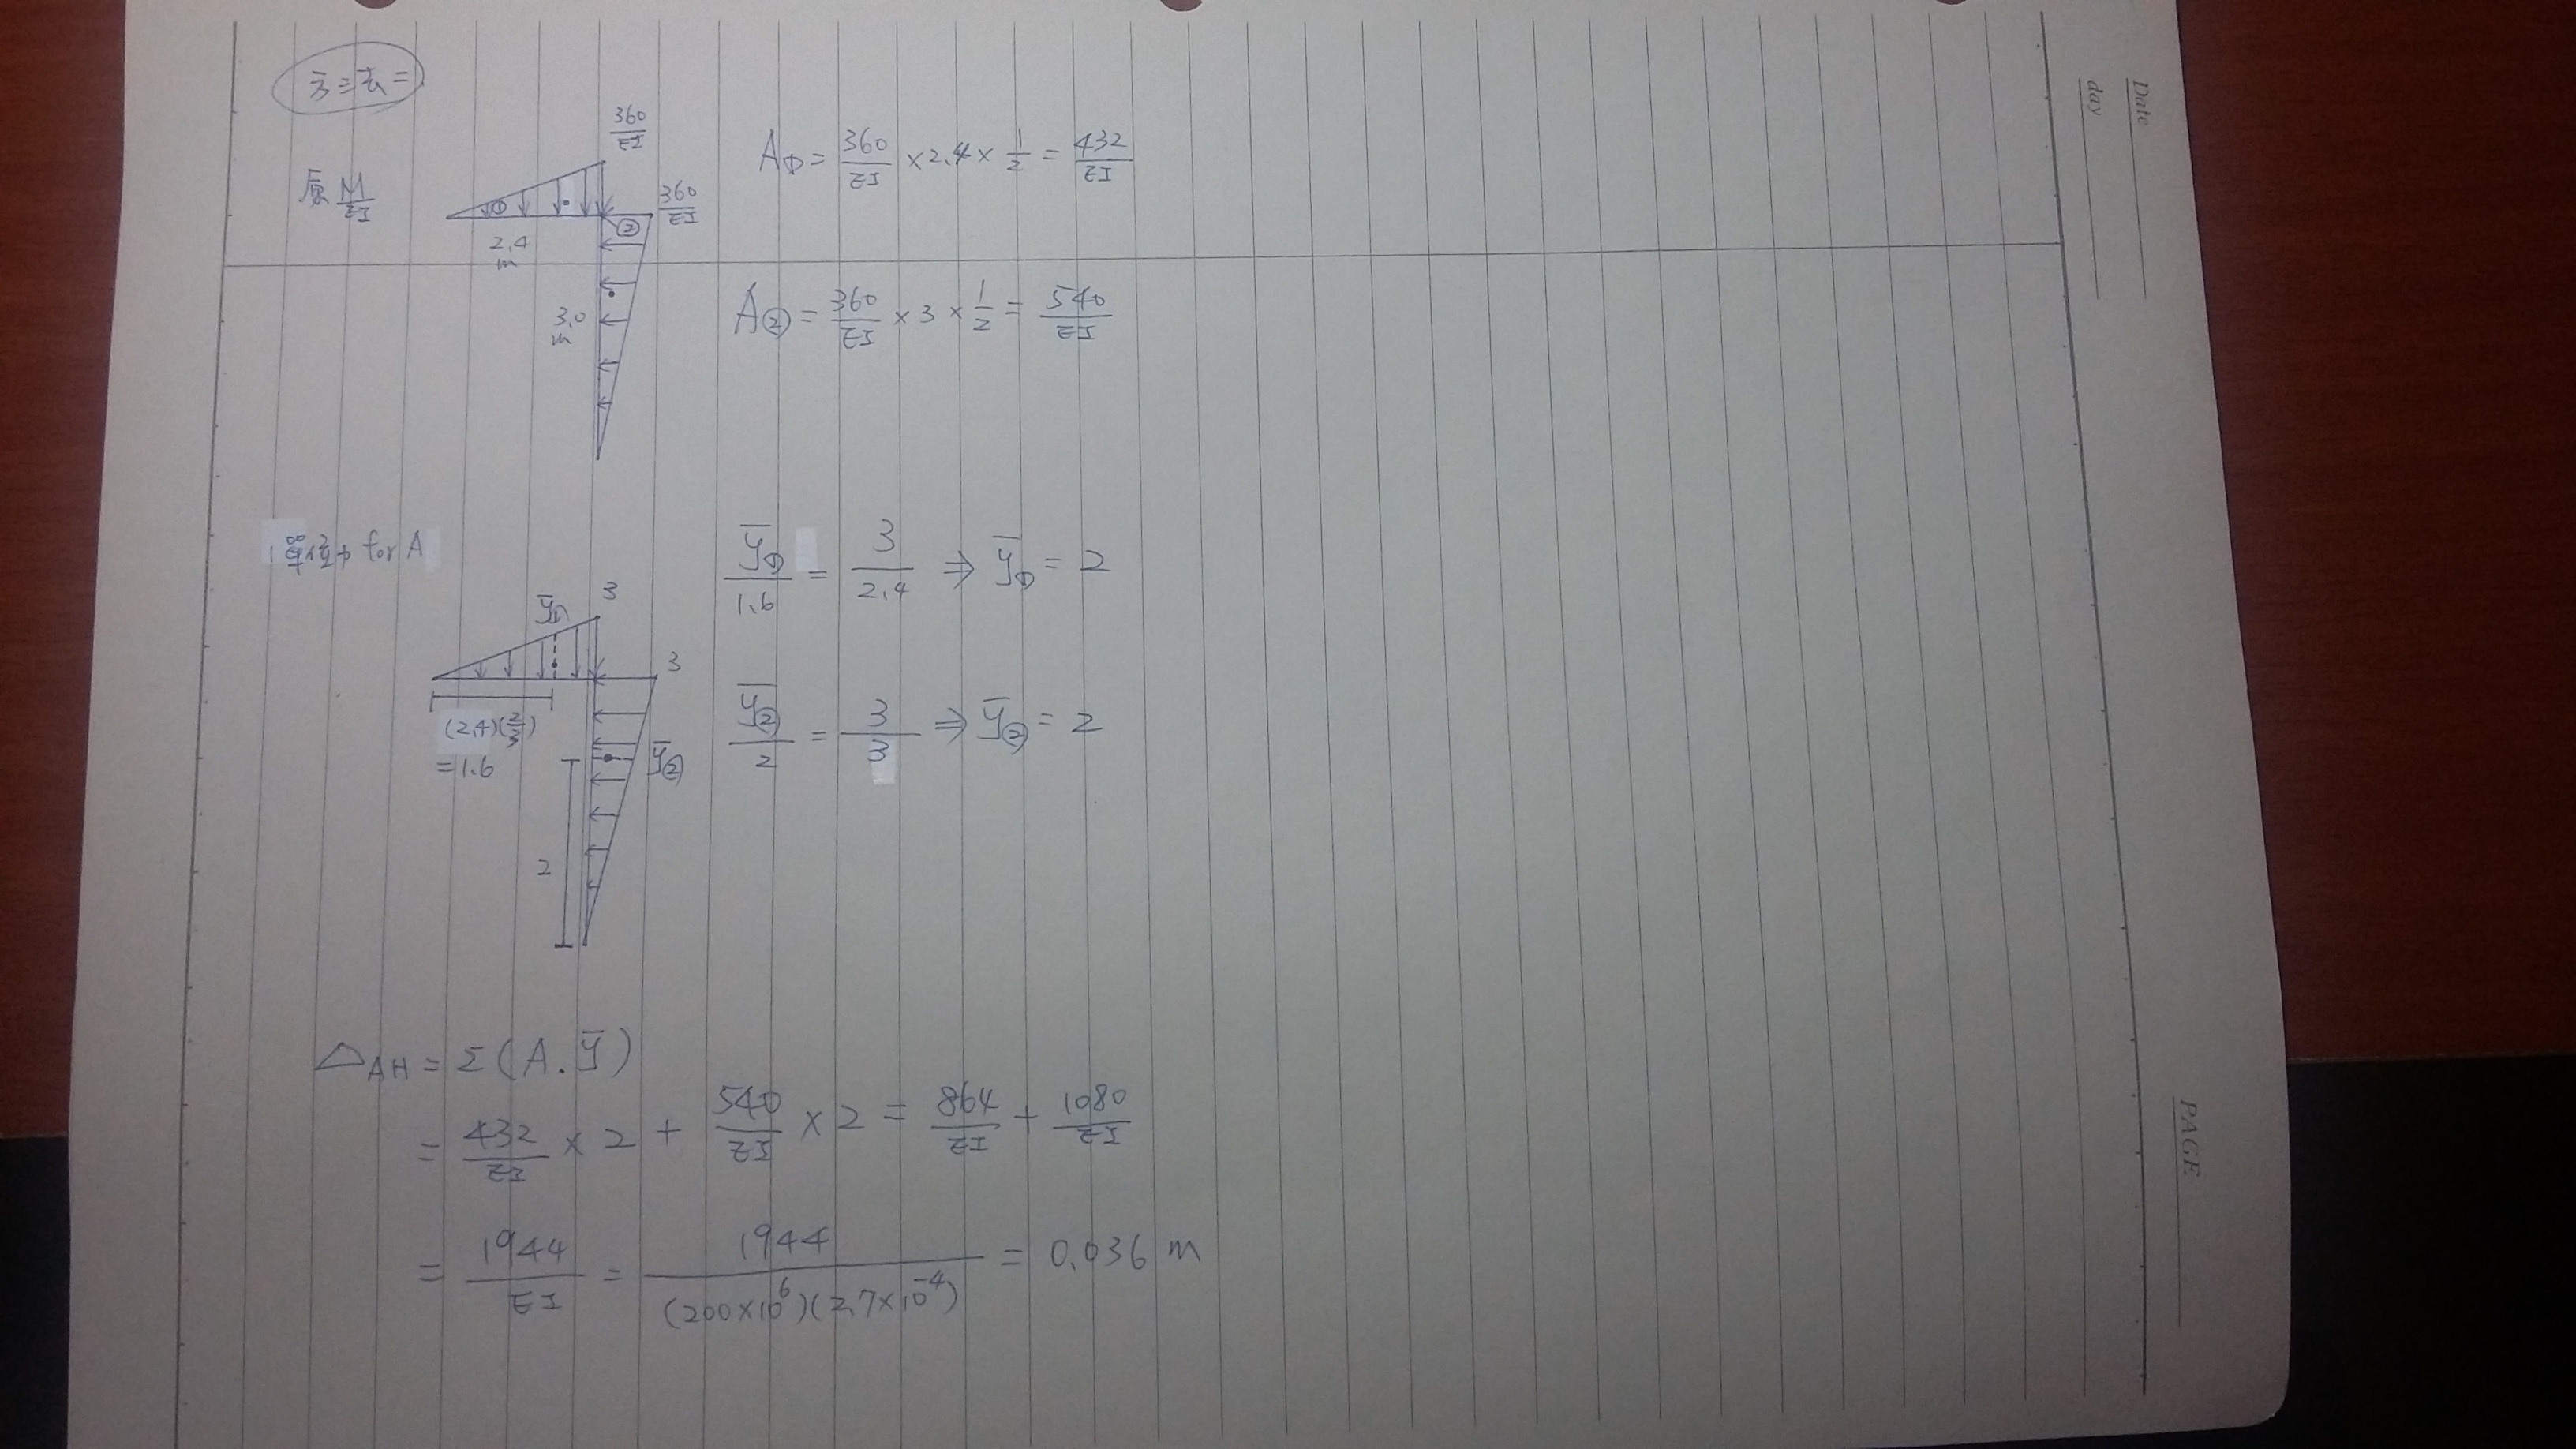 原 M/EI
360/EI
360/EI
①
②
2.4 m
3.0 m
A① = 360/EI × 2.4 × 1/2 = 432/EI
A② = 360/EI × 3 × 1/2 = 540/EI
for A
3
ȳ①
3
(2.4)(2/3)
= 1.6
ȳ②
2
ȳ①/1.6 = 3/2.4 ⇒ ȳ① = 2
ȳ②/2 = 3/3 ⇒ ȳ② = 2
△AH = Σ(A.ȳ)
= 432/EI × 2 + 540/EI × 2 = 864/EI + 1080/EI
= 1944/EI = 1944/(200×10⁶)(2.7×10⁻⁴) = 0.036 m
Date
day
PAGE